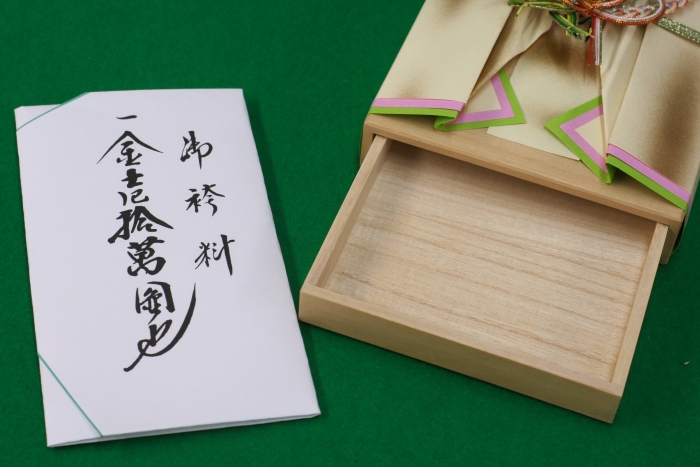 御袴料
一金壱拾萬圓也